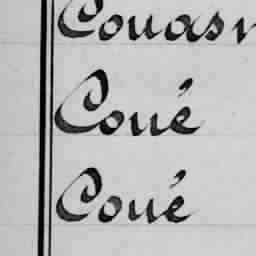 Couasn
Coué
Coué